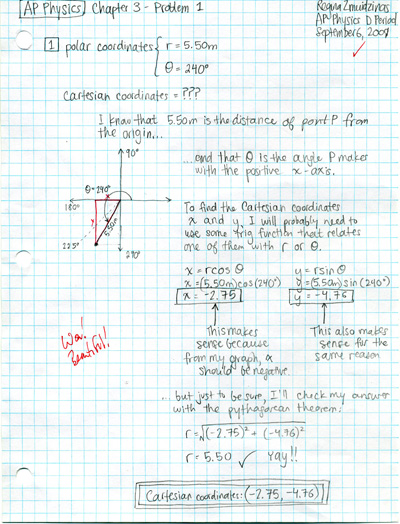 AP Physics Chapter 3 - Problem 1
Regina Zmuidzinas
AP Physics D Period
September 6, 2007
1 polar coordinates { r = 5.50m
θ = 240°
Cartesian coordinates = ???
I know that 5.50m is the distance of point P from
the origin...
90°
θ=240°
180°
5.50m
225°
270°
...and that θ is the angle P makes
with the positive x-axis.
To find the Cartesian coordinates
x and y, I will probably need to
use some trig function that relates
one of them with r or θ.
x = r cos θ
x = (5.50m) cos (240°)
x = -2.75
y = r sin θ
y = (5.50m) sin (240°)
y = -4.76
This makes
sense because
from my graph, x
should be negative.
This also makes
sense for the
same reason
Wow!
Beautiful!
...but just to be sure, I'll check my answer
with the pythagorean theorem:
r = √(-2.75)² + (-4.76)²
r = 5.50 ✓ Yay!!
Cartesian coordinates: (-2.75, -4.76)